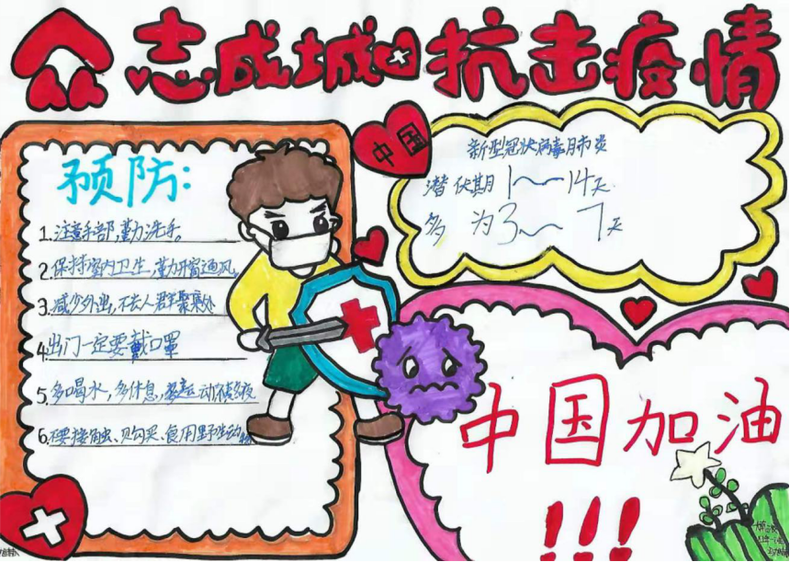 众志成城 抗击疫情
预防:
1.注意手部,勤洗手。
2.保持室内卫生,勤开窗通风
3.减少外出,不去人群聚集处
4.出门一定要戴口罩
5.多喝水,多休息,多运动不熬夜
6.不要接触、购买、食用野生动物
中国
新型冠状病毒肺炎
潜伏期1~14天
多为3~7天
中国加油
!!!